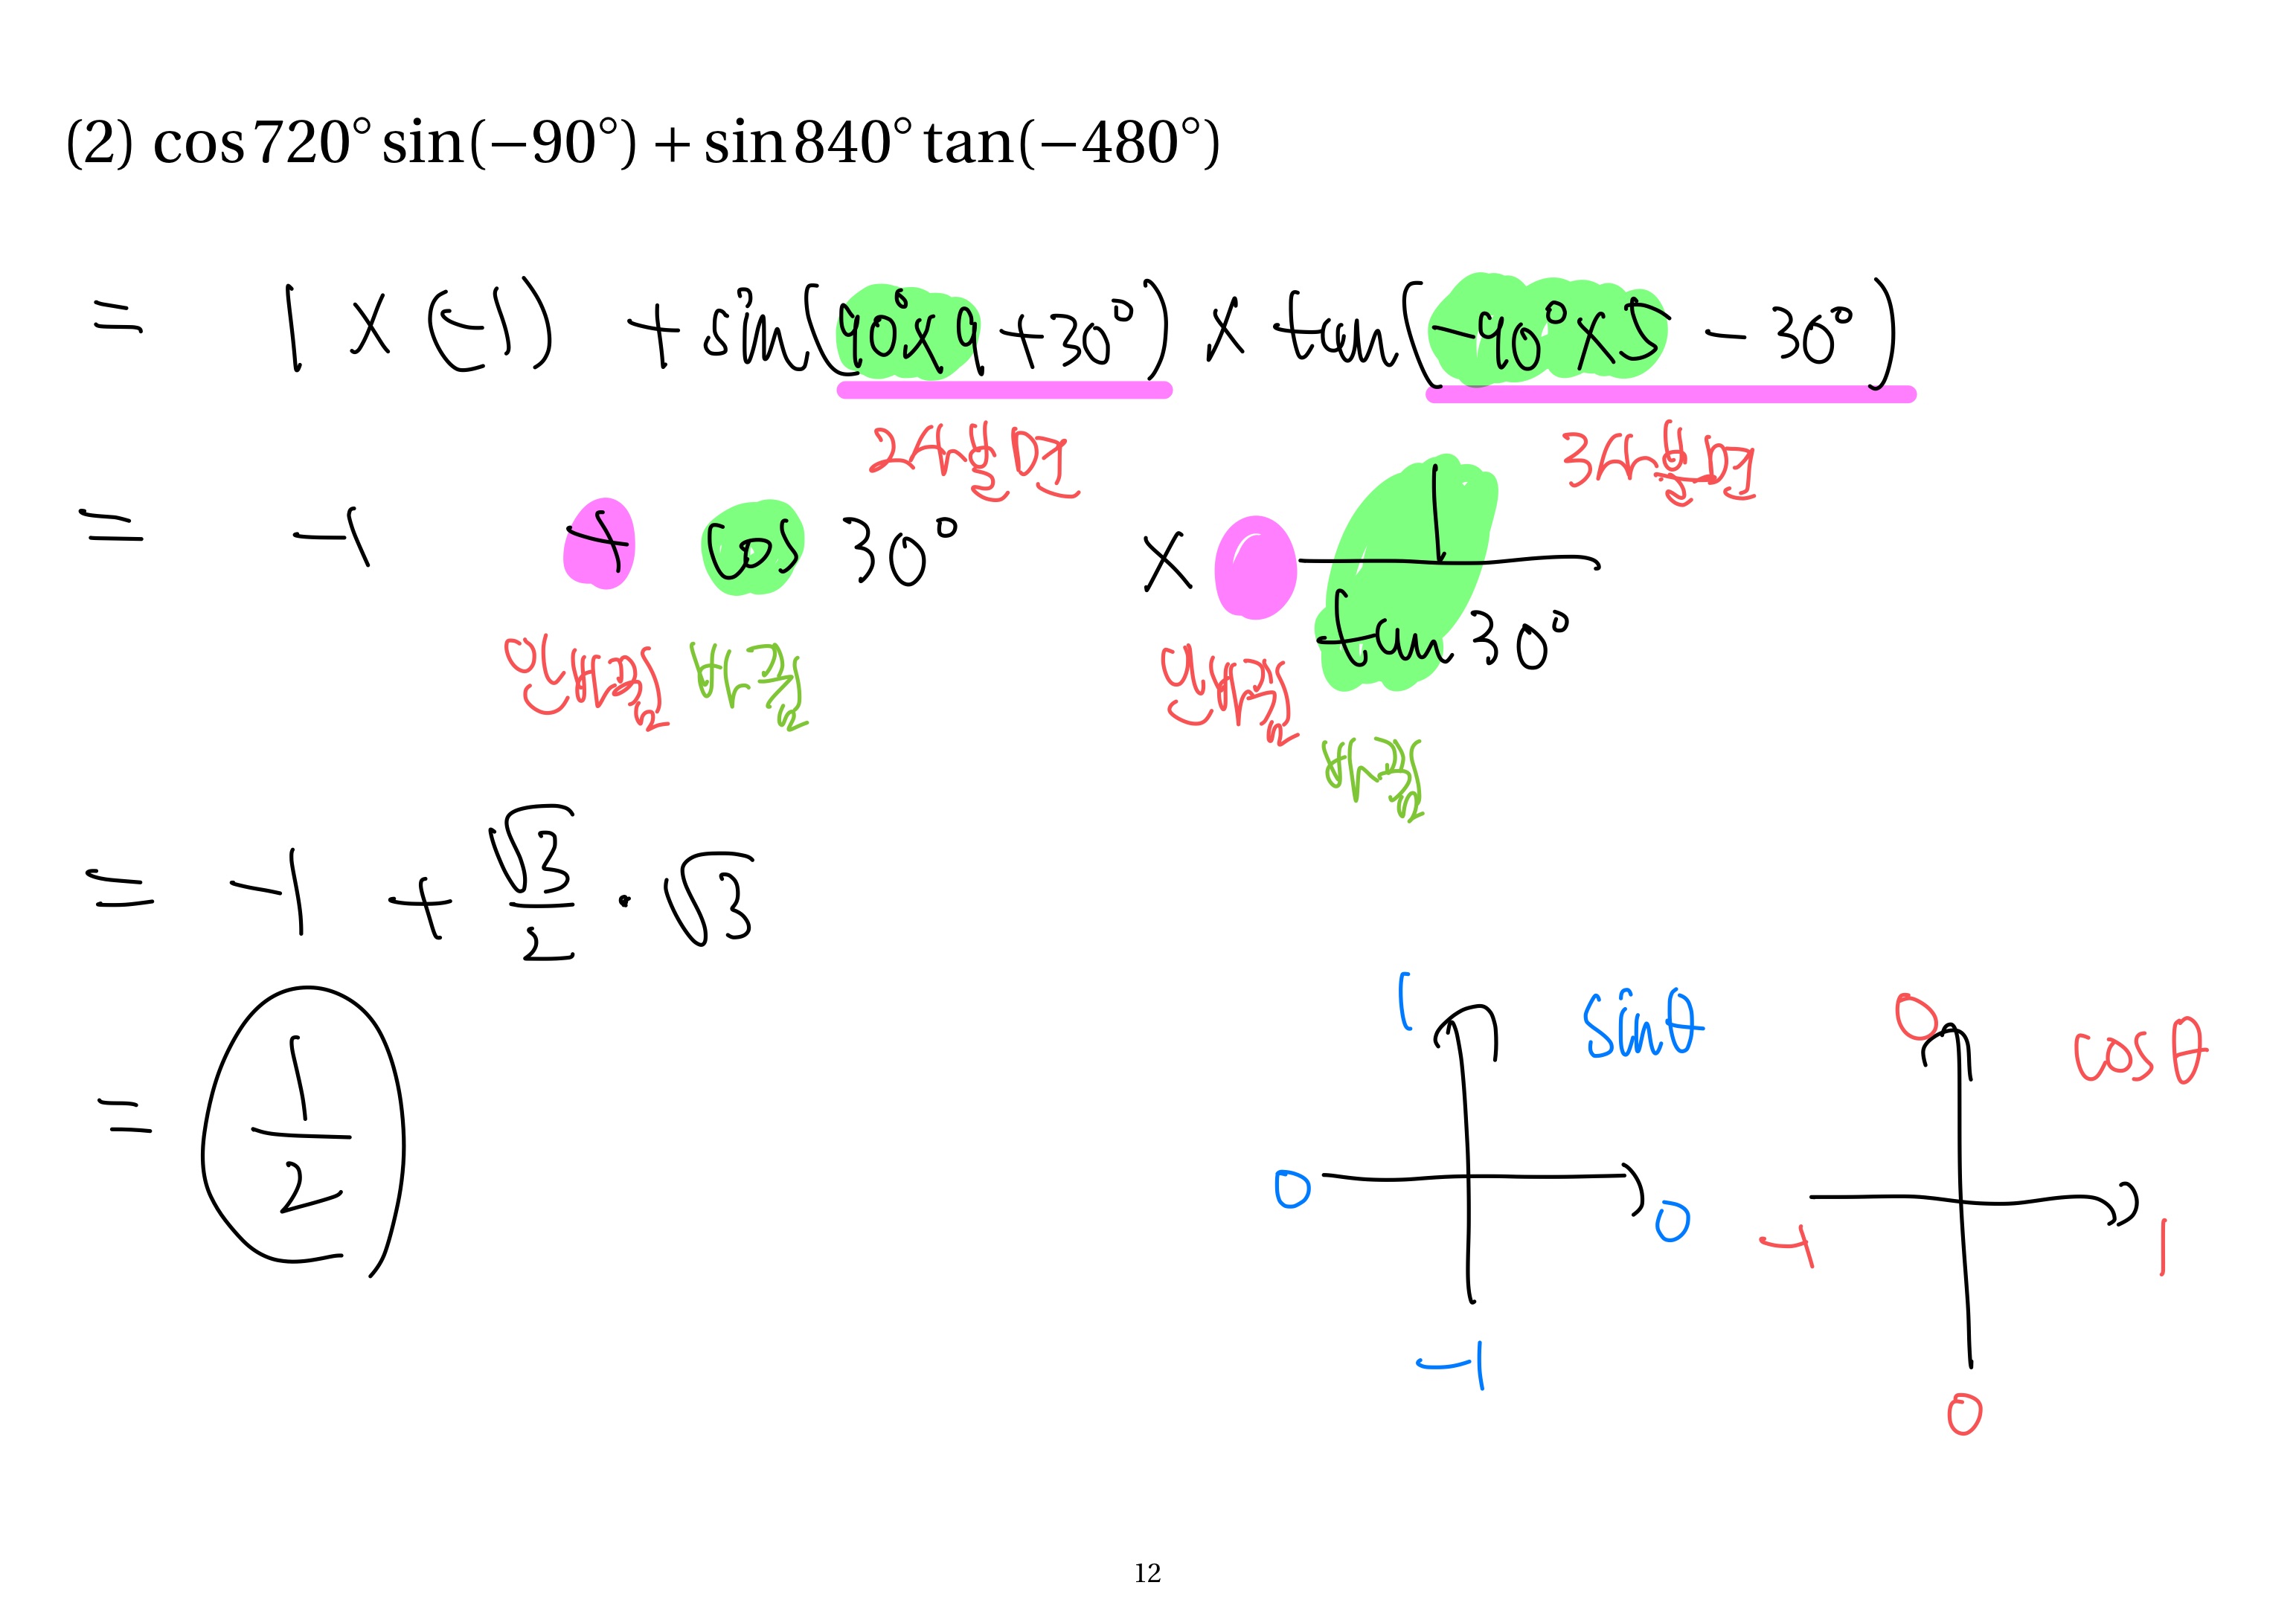 (2) cos 720° sin(−90°) + sin 840° tan(−480°)
= 1 × (−1) + sin(90°×9 + 30°) × tan(−90°×5 − 30°)
2사분면 3사분면
= −1 + cos 30° × 1/tan 30°
얼싸안고 변신 얼싸안고
변신
= −1 + √3/2 · √3
= 1/2
1 sinθ 0 cosθ
0 0 −1 1
−1 0
12